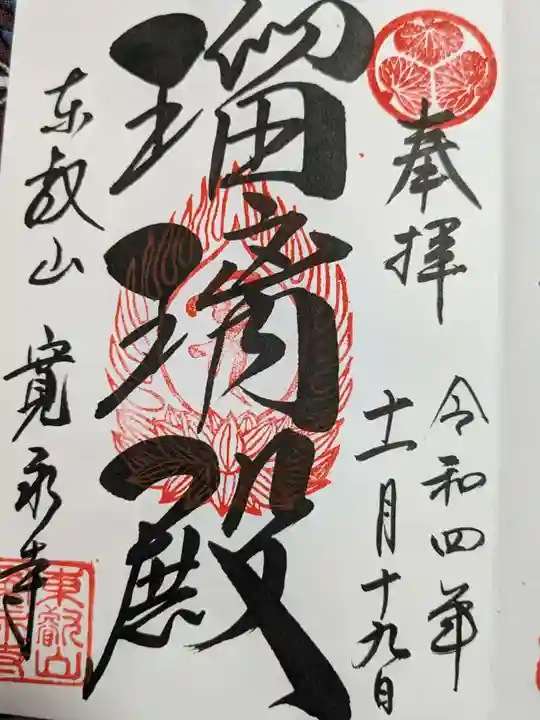 奉拝
令和四年
十一月十九日
瑠璃殿
東叡山 寛永寺
東叡山
寛永寺